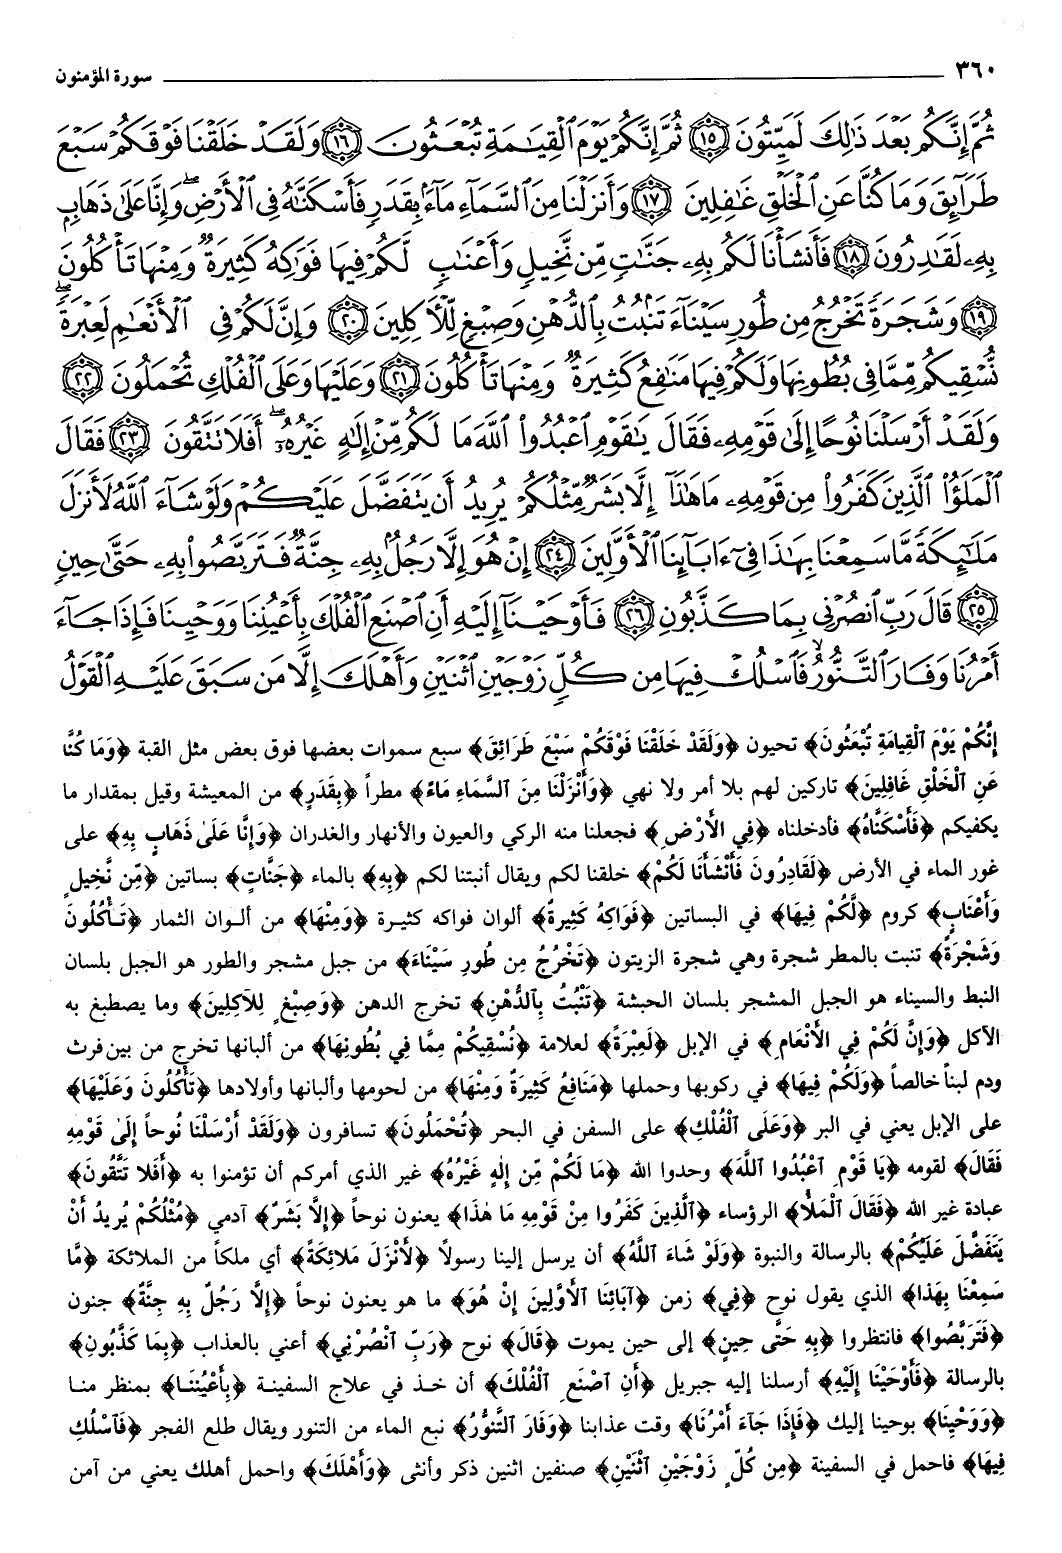 ٣٦٠ سورة المؤمنون
ثُمَّ إِنَّكُم بَعْدَ ذَٰلِكَ لَمَيِّتُونَ ١٥ ثُمَّ إِنَّكُمْ يَوْمَ ٱلْقِيَٰمَةِ تُبْعَثُونَ ١٦ وَلَقَدْ خَلَقْنَا فَوْقَكُمْ سَبْعَ
طَرَآئِقَ وَمَا كُنَّا عَنِ ٱلْخَلْقِ غَٰفِلِينَ ١٧ وَأَنزَلْنَا مِنَ ٱلسَّمَآءِ مَآءًۢ بِقَدَرٍ فَأَسْكَنَّٰهُ فِى ٱلْأَرْضِ ۖ وَإِنَّا عَلَىٰ ذَهَابٍۭ
بِهِۦ لَقَٰدِرُونَ ١٨ فَأَنشَأْنَا لَكُم بِهِۦ جَنَّٰتٍ مِّن نَّخِيلٍ وَأَعْنَٰبٍ لَّكُمْ فِيهَا فَوَٰكِهُ كَثِيرَةٌ وَمِنْهَا تَأْكُلُونَ
١٩ وَشَجَرَةً تَخْرُجُ مِن طُورِ سَيْنَآءَ تَنۢبُتُ بِٱلدُّهْنِ وَصِبْغٍ لِّلْءَاكِلِينَ ٢٠ وَإِنَّ لَكُمْ فِى ٱلْأَنْعَٰمِ لَعِبْرَةً ۖ
نُّسْقِيكُم مِّمَّا فِى بُطُونِهَا وَلَكُمْ فِيهَا مَنَٰفِعُ كَثِيرَةٌ وَمِنْهَا تَأْكُلُونَ ٢١ وَعَلَيْهَا وَعَلَى ٱلْفُلْكِ تُحْمَلُونَ ٢٢
وَلَقَدْ أَرْسَلْنَا نُوحًا إِلَىٰ قَوْمِهِۦ فَقَالَ يَٰقَوْمِ ٱعْبُدُوا۟ ٱللَّهَ مَا لَكُم مِّنْ إِلَٰهٍ غَيْرُهُۥٓ ۖ أَفَلَا تَتَّقُونَ ٢٣ فَقَالَ
ٱلْمَلَؤُا۟ ٱلَّذِينَ كَفَرُوا۟ مِن قَوْمِهِۦ مَا هَٰذَآ إِلَّا بَشَرٌ مِّثْلُكُمْ يُرِيدُ أَن يَتَفَضَّلَ عَلَيْكُمْ وَلَوْ شَآءَ ٱللَّهُ لَأَنزَلَ
مَلَٰٓئِكَةً مَّا سَمِعْنَا بِهَٰذَا فِىٓ ءَابَآئِنَا ٱلْأَوَّلِينَ ٢٤ إِنْ هُوَ إِلَّا رَجُلٌۢ بِهِۦ جِنَّةٌ فَتَرَبَّصُوا۟ بِهِۦ حَتَّىٰ حِينٍ
٢٥ قَالَ رَبِّ ٱنصُرْنِى بِمَا كَذَّبُونِ ٢٦ فَأَوْحَيْنَآ إِلَيْهِ أَنِ ٱصْنَعِ ٱلْفُلْكَ بِأَعْيُنِنَا وَوَحْيِنَا فَإِذَا جَآءَ
أَمْرُنَا وَفَارَ ٱلتَّنُّورُ ۙ فَٱسْلُكْ فِيهَا مِن كُلٍّ زَوْجَيْنِ ٱثْنَيْنِ وَأَهْلَكَ إِلَّا مَن سَبَقَ عَلَيْهِ ٱلْقَوْلُ
إِنَّكُمْ يَوْمَ ٱلْقِيَامَةِ تُبْعَثُونَ﴾ تحيون ﴿وَلَقَدْ خَلَقْنَا فَوْقَكُمْ سَبْعَ طَرَائِقَ﴾ سبع سموات بعضها فوق بعض مثل القبة ﴿وَمَا كُنَّا
عَنِ ٱلْخَلْقِ غَافِلِينَ﴾ تاركين لهم بلا أمر ولا نهي ﴿وَأَنْزَلْنَا مِنَ ٱلسَّمَاءِ مَاءً﴾ مطراً ﴿بِقَدَرٍ﴾ من المعيشة وقيل بمقدار ما
يكفيكم ﴿فَأَسْكَنَّاهُ﴾ فأدخلناه ﴿فِي الأَرْضِ﴾ فجعلنا منه الركي والعيون والأنهار والغدران ﴿وَإِنَّا عَلَىٰ ذَهَابٍ بِهِ﴾ على
غور الماء في الأرض ﴿لَقَادِرُونَ فَأَنْشَأْنَا لَكُمْ﴾ خلقنا لكم ويقال أنبتنا لكم ﴿بِهِ﴾ بالماء ﴿جَنَّاتٍ﴾ بساتين ﴿مِّن نَّخِيلٍ
وَأَعْنَابٍ﴾ كروم ﴿لَّكُمْ فِيهَا﴾ في البساتين ﴿فَوَاكِهُ كَثِيرَةٌ﴾ ألوان فواكه كثيرة ﴿وَمِنْهَا﴾ من ألوان الثمار ﴿تَأْكُلُونَ
وَشَجَرَةً﴾ تنبت بالمطر شجرة وهي شجرة الزيتون ﴿تَخْرُجُ مِن طُورِ سَيْنَاءَ﴾ من جبل مشجر والطور هو الجبل بلسان
النبط والسيناء هو الجبل المشجر بلسان الحبشة ﴿تَنْبُتُ بِالدُّهْنِ﴾ تخرج الدهن ﴿وَصِبْغٍ لِلآكِلِينَ﴾ وما يصطبغ به
الآكل ﴿وَإِنَّ لَكُمْ فِي الأَنْعَامِ﴾ في الإبل ﴿لَعِبْرَةً﴾ لعلامة ﴿نُسْقِيكُمْ مِمَّا فِي بُطُونِهَا﴾ من ألبانها تخرج من بين فرث
ودم لبناً خالصاً ﴿وَلَكُمْ فِيهَا﴾ في ركوبها وحملها ﴿مَنَافِعُ كَثِيرَةٌ وَمِنْهَا﴾ من لحومها وألبانها وأولادها ﴿تَأْكُلُونَ وَعَلَيْهَا﴾
على الإبل يعني في البر ﴿وَعَلَى ٱلْفُلْكِ﴾ على السفن في البحر ﴿تُحْمَلُونَ﴾ تسافرون ﴿وَلَقَدْ أَرْسَلْنَا نُوحاً إِلَىٰ قَوْمِهِ
فَقَالَ﴾ لقومه ﴿يَا قَوْمِ ٱعْبُدُوا ٱللَّهَ﴾ وحدوا الله ﴿مَا لَكُمْ مِّن إِلٰهٍ غَيْرُهُ﴾ غير الذي أمركم أن تؤمنوا به ﴿أَفَلا تَتَّقُونَ﴾
عبادة غير الله ﴿فَقَالَ ٱلْمَلأُ﴾ الرؤساء ﴿ٱلَّذِينَ كَفَرُوا مِنْ قَوْمِهِ مَا هٰذَا﴾ يعنون نوحاً ﴿إِلَّا بَشَرٌ﴾ آدمي ﴿مِّثْلُكُمْ يُرِيدُ أَنْ
يَتَفَضَّلَ عَلَيْكُمْ﴾ بالرسالة والنبوة ﴿وَلَوْ شَاءَ ٱللَّهُ﴾ أن يرسل إلينا رسولاً ﴿لأَنْزَلَ مَلائِكَةً﴾ أي ملكاً من الملائكة ﴿مَّا
سَمِعْنَا بِهَذا﴾ الذي يقول نوح ﴿فِي﴾ زمن ﴿آبَائِنَا ٱلأَوَّلِينَ إِنْ هُوَ﴾ ما هو يعنون نوحاً ﴿إِلَّا رَجُلٌ بِهِ جِنَّةٌ﴾ جنون
﴿فَتَرَبَّصُوا﴾ فانتظروا ﴿بِهِ حَتَّى حِينٍ﴾ إلى حين يموت ﴿قَالَ﴾ نوح ﴿رَبِّ ٱنْصُرْنِي﴾ أعني بالعذاب ﴿بِمَا كَذَّبُونِ﴾
بالرسالة ﴿فَأَوْحَيْنَا إِلَيْهِ﴾ أرسلنا إليه جبريل ﴿أَنِ ٱصْنَعِ ٱلْفُلْكَ﴾ أن خذ في علاج السفينة ﴿بِأَعْيُنِنَا﴾ بمنظر منا
﴿وَوَحْيِنَا﴾ بوحينا إليك ﴿فَإِذَا جَآءَ أَمْرُنَا﴾ وقت عذابنا ﴿وَفَارَ ٱلتَّنُّورُ﴾ نبع الماء من التنور ويقال طلع الفجر ﴿فَٱسْلُكْ
فِيهَا﴾ فاحمل في السفينة ﴿مِن كُلٍّ زَوْجَيْنِ ٱثْنَيْنِ﴾ صنفين اثنين ذكر وأنثى ﴿وَأَهْلَكَ﴾ واحمل أهلك يعني من آمن